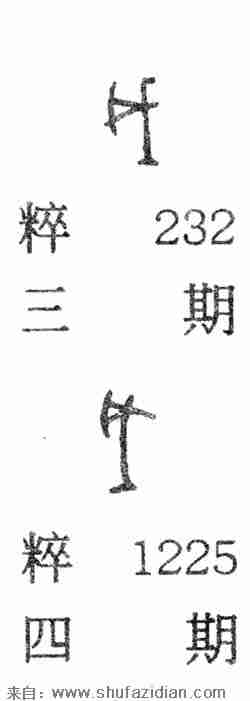 粹 232
三 期
粹 1225
四 期
来自：www.shufazidian.com